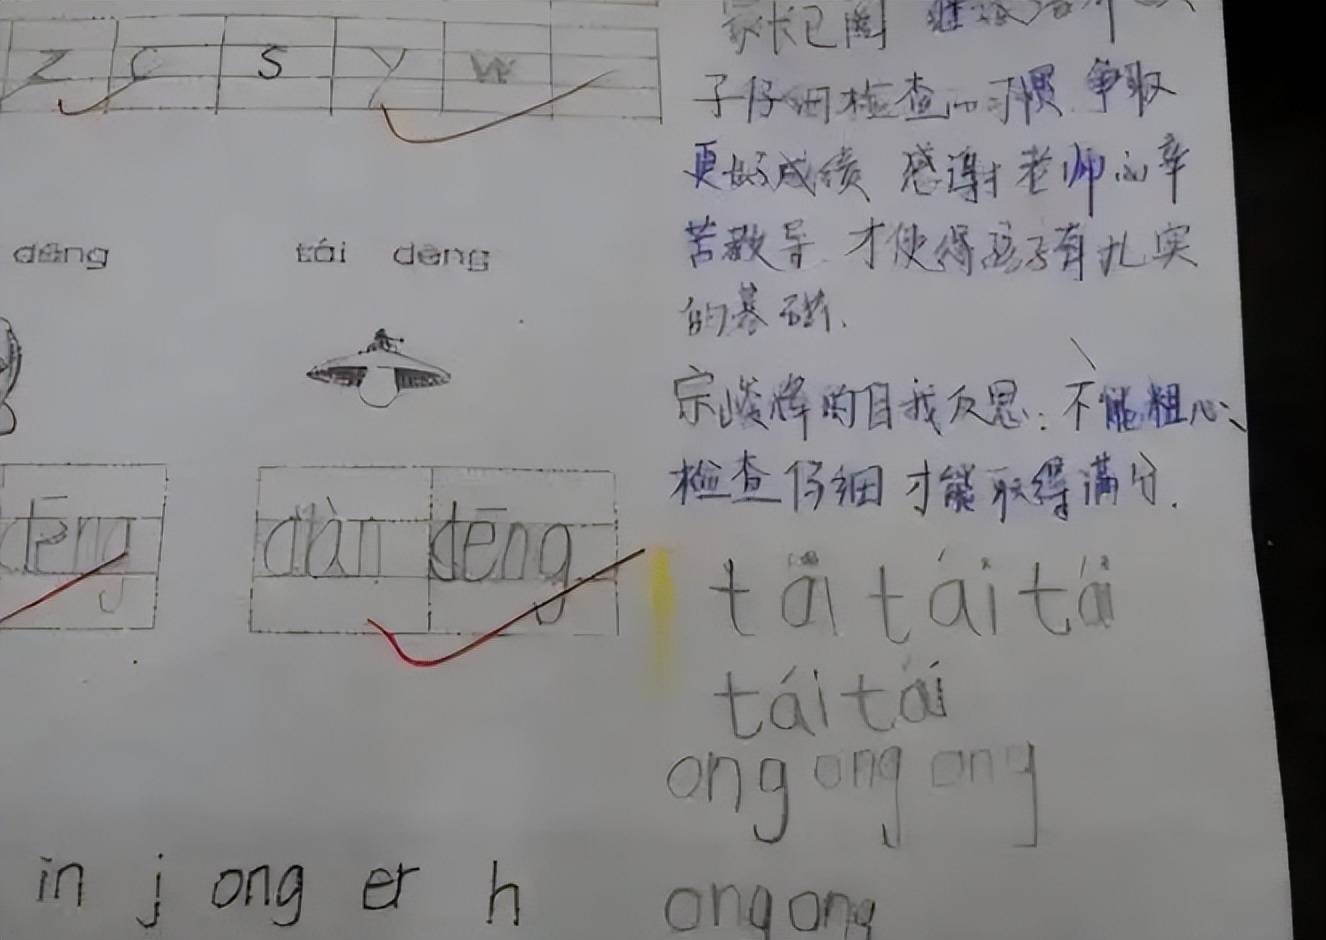 z c s y w
dēng tái dēng
dēng diàn dēng
in j ong er h
子仔细检查的习惯 争取
更好成绩 感谢老师的辛
苦教导 才使得孩子有扎实
的基础.
的自我反思: 不能粗心、
检查仔细 才能取得满分.
tái tái tái
tái tái
ong ong ong
ong ong